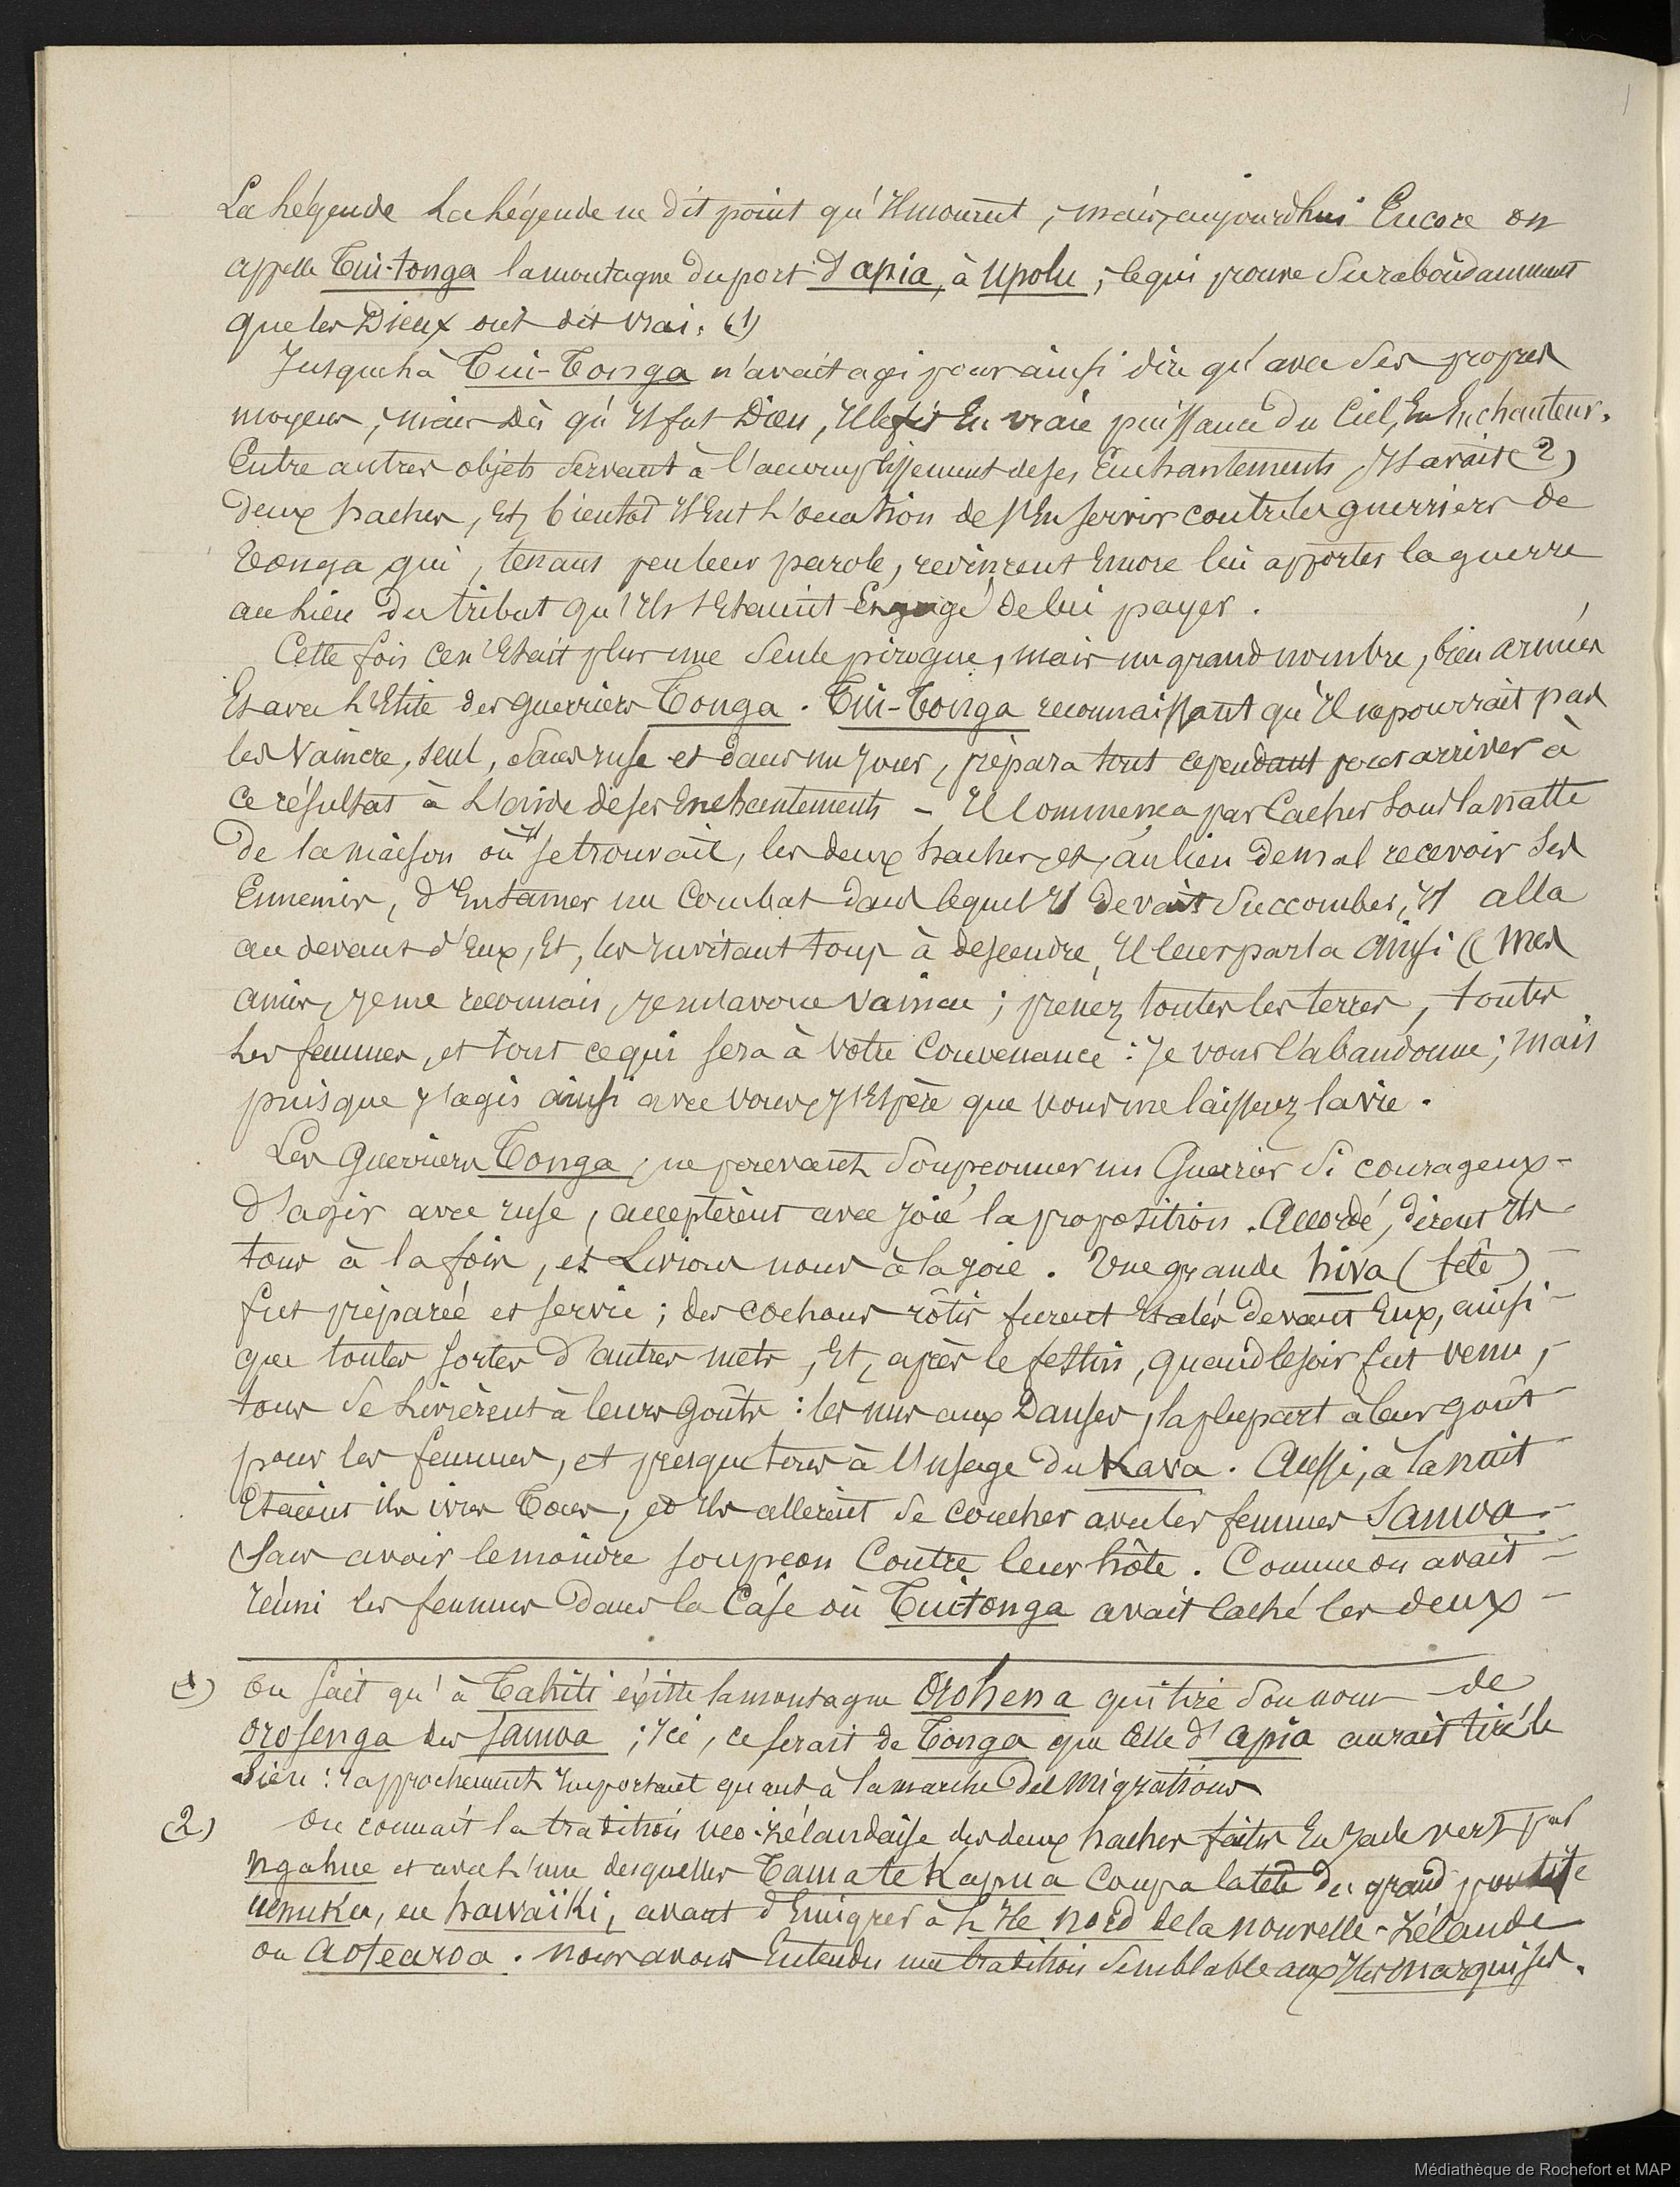 La Légende La Légende ne dit point qu'Il mourut, mais, aujourdhui Encore on
appelle Tui-tonga la montagne du port d'apia, à Upolu ; ce qui prouve Surabondamment
que les Dieux ont dit vrai. (1)
Jusque là Tui-Tonga n'avait agi pour ainsi dire qu'avec Ses propres
moyens, mais Dès qu'Il fut Dieu, Il le fit En vraie puissance du Ciel, En Enchanteur.
Entre autres objets Servant à l'accomplissement de ses Enchantements, Il avait (2)
deux haches, Et, bientôt Il Eut L'occasion de s'En servir contre les guerriers de
Tonga qui, tenant peu leur parole, revinrent Encore lui apporter la guerre
au Lieu du tribut qu'Ils s'Etaient Engagé de lui payer.
Cette fois ce n'Etait plus une Seule pirogue, mais un grand nombre, bien armées
Et avec L'Elite des guerriers Tonga. Tui-Tonga reconnaissant qu'Il ne pourrait pas
les Vaincre, seul, sans ruse et dans un jour, prépara tout cependant pour arriver à
ce résultat à L'aide de ses Enchantements – Il Commença par Cacher Sous la natte
De la maison où Il se trouvait, les deux haches, et, au lieu de mal recevoir Ses
Ennemis, d'Entamer un Combat dans lequel Il devait Succomber, Il alla
au devant d'Eux, Et, les Invitant tous à descendre, Il leur parla ainsi (( Mes
amis, Je me reconnais, Je m'avoue vaincu ; prenez toutes les terres, toutes
Les femmes, et tout ce qui sera à Votre Convenance : Je vous l'abandonne ; Mais
puisque J'agis ainsi avec vous, J'Espère que vous me laisserez la vie.
Les Guerriers Tonga, ne pouvant Soupçonner un Guerrier Si courageux
d'agir avec ruse, acceptèrent avec joie la proposition. Accordé, dirent Ils
tous à la fois, et Livrons nous à la joie. Une grande hiva (fête)
fut préparée et servie ; des cochons rôtis furent Etalés devant Eux, ainsi
que toutes sortes d'autres mets, Et, après le festin, quand le soir fut venu,
tous Se Livrèrent à leurs goûts : les uns aux Danses, la plupart à leur goût
pour les femmes, et presque tous à l'usage du Kava. Aussi, à la nuit
Etaient ils ivres Tous, et Ils allèrent Se coucher avec les femmes Samoa
Sans avoir le moindre soupçon Contre leur hôte. Comme on avait
réuni les femmes dans la Case où Tuitonga avait caché les deux
(1) On sait qu'à Tahiti existe la montagne Orohena qui tire Son nom de
Orosenga des Samoa ; Ici, ce serait de Tonga que Celle d'apia aurait tiré le
Sien : rapprochement Important quant à la marche Des Migrations
(2) On connait la tradition néo-Zélandaise des deux haches faites En Jade vert par
ngahue et avec L'une desquelles Tama te Kapua Coupa la tête du grand pontife
uenuku, en hawaïki, avant d'Emigrer à L'Ile Nord de la nouvelle-Zélande
ou Aotearoa. Nous avons Entendu une tradition Semblable aux Iles Marquises.
Médiathèque de Rochefort et MAP